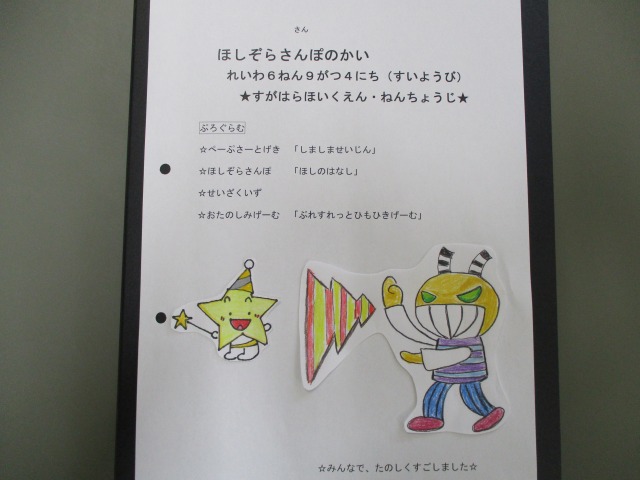 さん
ほしぞらさんぽのかい
れいわ６ねん９がつ４にち（すいようび）
★すがはらほいくえん・ねんちょうじ★
ぷろぐらむ
☆ぺーぷさーとげき　「しましませいじん」
☆ほしぞらさんぽ　「ほしのはなし」
☆せいざくいず
☆おたのしみげーむ　「ぶれすれっとひもひきげーむ」
☆みんなで、たのしくすごしました☆